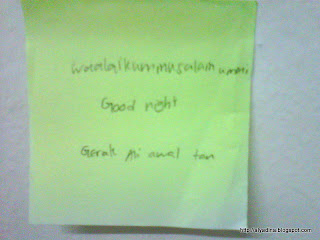 waalaikummusalam ummi
Good night
Gerak Ai awal tau
http://alyadina.blogspot.com